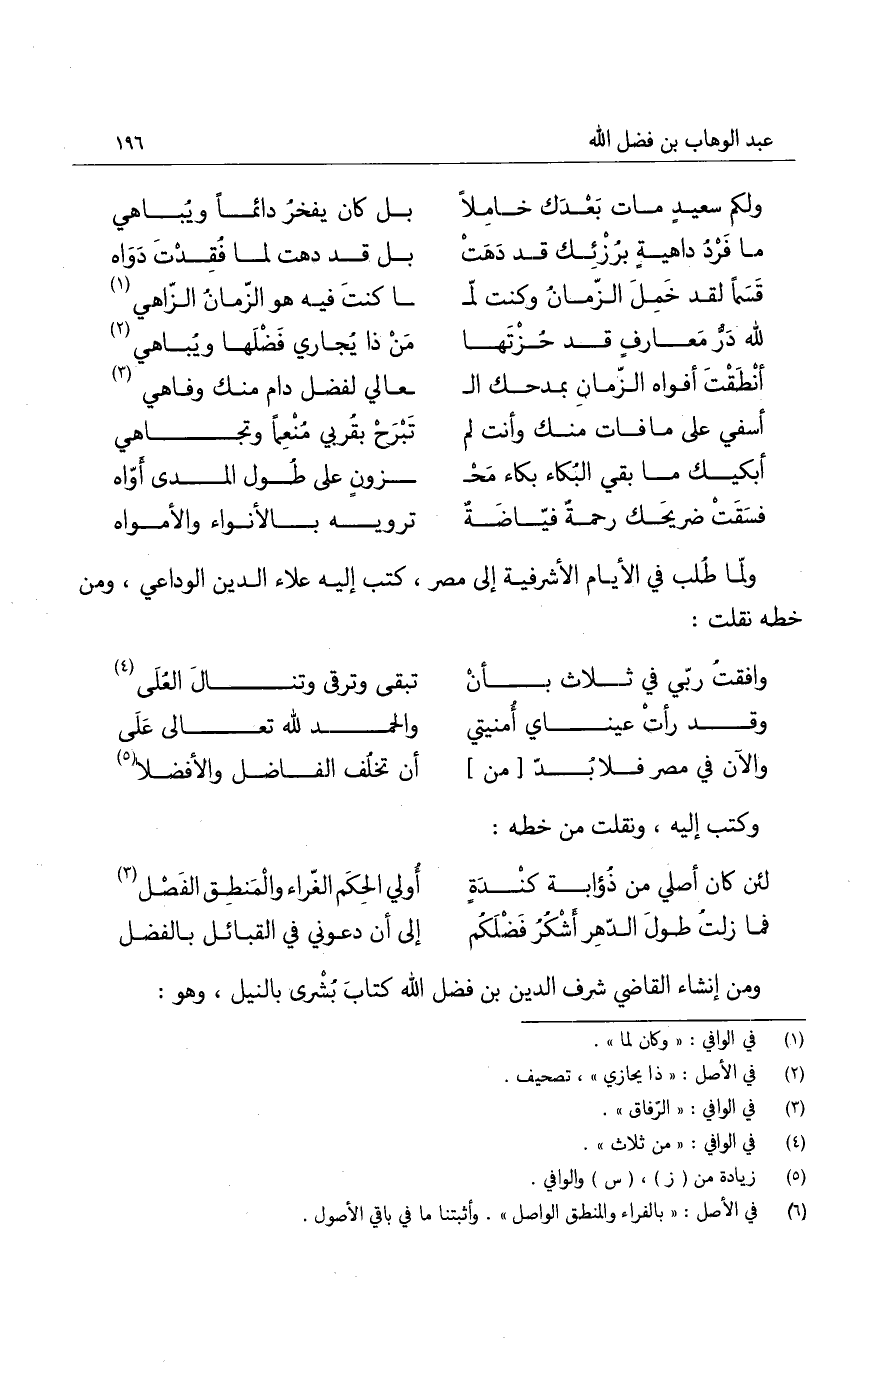 عبد الوهاب بن فضل الله ١٩٦
ولكم سعيدٍ مات بَعْدَك خاملاً بل كان يفخرُ دائماً ويُباهي
ما فَرْدُ داهيةٍ برُزْئِك قد دَهَتْ بل قد دهت لما فُقِدْتَ دَوَاه
قَسَماً لقد خَمِلَ الزّمانُ وكنت لمـ ـا كنتَ فيه هو الزّمانُ الزّاهي (١)
لله دَرُّ مَعارفٍ قد حُزْتَها مَنْ ذا يُجاري فَضْلَها ويُباهي (٢)
أنْطَقْتَ أفواه الزّمانِ بمدحك الـ ـعالي لفضل دام منك وفاهي (٣)
أسفي على ما فات منك وأنت لم تَبْرَحْ بقُربي مُنْعِماً وتجاهي
أبكيك ما بقي البُكاء بكاء مَحْـ ـزونٍ على طُول المدى أوّاه
فسَقَتْ ضريحَك رحمةٌ فيّاضةٌ ترويه بالأنواء والأمواه
ولمّا طُلب في الأيام الأشرفية إلى مصر ، كتب إليه علاء الدين الوداعي ، ومن
خطه نقلت :
وافقتُ ربّي في ثلاث بأنْ تبقى وترقى وتنالَ العُلَى (٤)
وقد رأتْ عيناي أُمنيتي والحمد لله تعالى عَلَى
والآن في مصر فلابُدّ [ من ] أن تخلُف الفاضل والأفضلا (٥)
وكتب إليه ، ونقلت من خطه :
لئن كان أصلي من ذُؤابة كنْدَةٍ أُولي الحِكَم الغّراء والْمَنطِق الفَصْل (٣)
فما زلتُ طولَ الدّهر أشْكُرُ فَضْلَكُم إلى أن دعوني في القبائل بالفضل
ومن إنشاء القاضي شرف الدين بن فضل الله كتابَ بُشْرى بالنيل ، وهو :
(١) في الوافي : « وكان لما » .
(٢) في الأصل : « ذا يحازي » ، تصحيف .
(٣) في الوافي : « الرّفاق » .
(٤) في الوافي : « من ثلاث » .
(٥) زيادة من ( ز ) ، ( س ) والوافي .
(٦) في الأصل : « بالفراء والمنطق الواصل » . وأثبتنا ما في باقي الأصول .